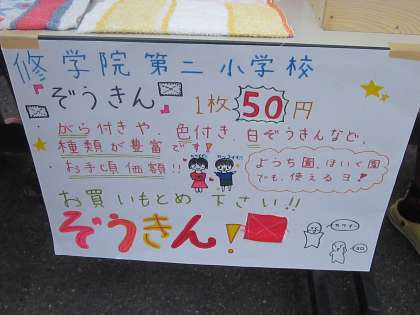 修学院第二小学校
『ぞうきん』
1枚50円
・がら付きや、色付き、白ぞうきんなど、
種類が豊富です!
・お手頃価額!!
ようち園、ほいく園
でも、使えるヨ!
お買いもとめ下さい!!
ぞうきん!